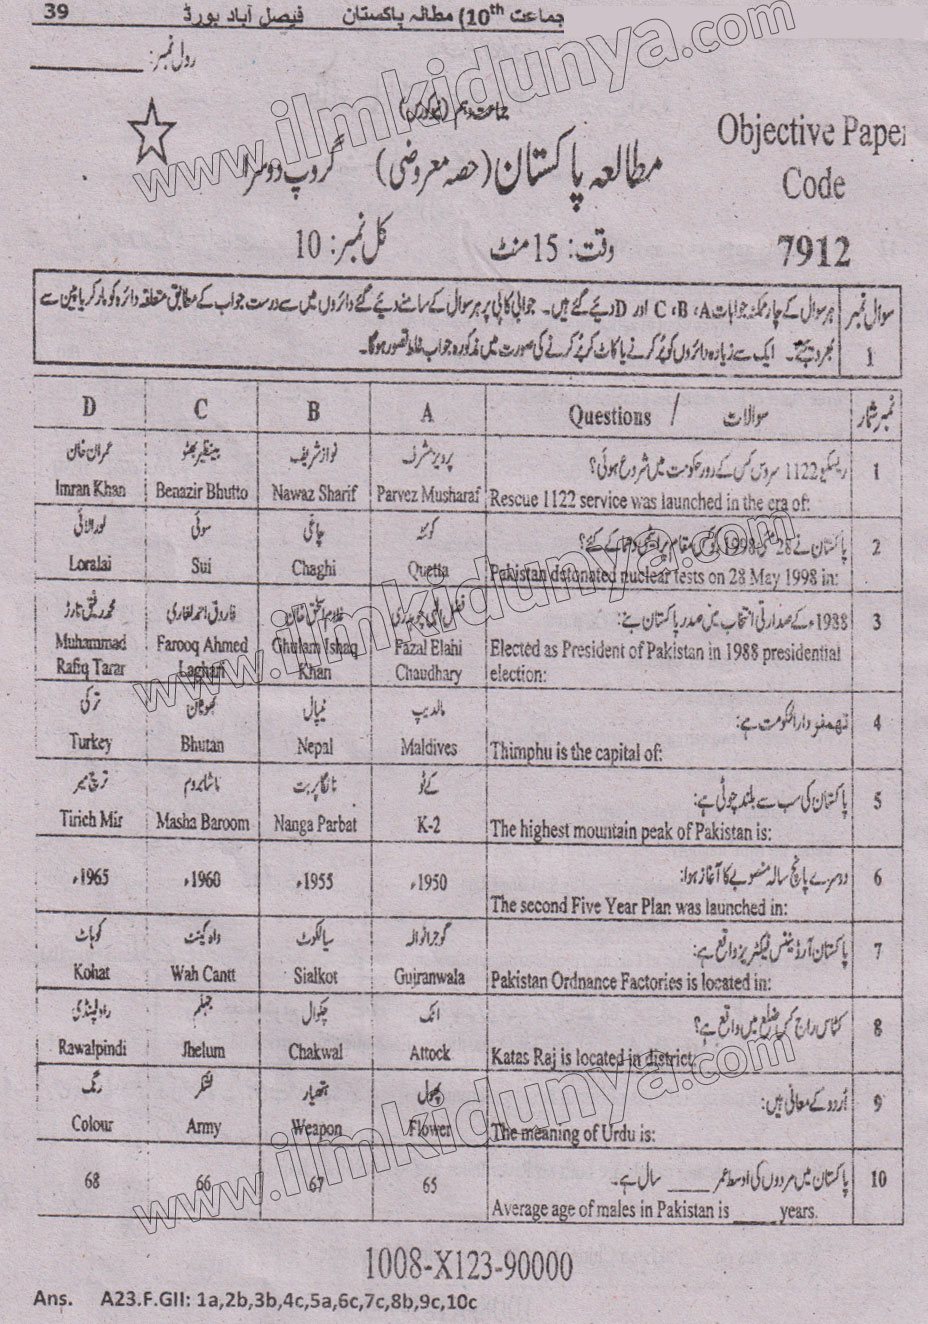 39
جماعت 10th) مطالہ پاکستان فیصل آباد بورڈ
رول نمبر:
جماعت دہم (نیوکورس)
مطالعہ پاکستان (حصہ معروضی) گروپ دوسرا
Objective Paper
Code
7912
وقت: 15 منٹ
کل نمبر: 10
سوال نمبر 1
ہر سوال کے چار ممکنہ جوابات A، B، C اور D دیئے گئے ہیں۔ جوابی کاپی پر ہر سوال کے سامنے دیئے گئے دائروں میں سے درست جواب کے مطابق متعلقہ دائرہ کو مارکر یا پین سے
بھر دیجئے۔ ایک سے زیادہ دائروں کو پُر کرنے یا کاٹ کر پُر کرنے کی صورت میں مذکورہ جواب غلط تصور ہوگا۔
نمبر شمار سوالات / Questions A B C D
1 ریسکیو 1122 سروس کس کے دور حکومت میں شروع ہوئی؟
پرویز مشرف نواز شریف بینظیر بھٹو عمران خان
Rescue 1122 service was launched in the era of: Parvez Musharaf Nawaz Sharif Benazir Bhutto Imran Khan
2 پاکستان نے 28 مئی 1998ء کو کس مقام پر ایٹمی دھماکے کئے؟
کوئٹہ چاغی سوئی لورالائی
Pakistan detonated nuclear tests on 28 May 1998 in: Quetta Chaghi Sui Loralai
3 1988ء کے صدارتی انتخاب میں صدر پاکستان بنے:
فضل الٰہی چوہدری غلام اسحٰق خان فاروق احمد لغاری محمد رفیق تارڑ
Elected as President of Pakistan in 1988 presidential election: Fazal Elahi Chaudhary Ghulam Ishaq Khan Farooq Ahmed Laghari Muhammad Rafiq Tarar
4 تھمفو دارالحکومت ہے:
مالدیپ نیپال بھوٹان ترکی
Thimphu is the capital of: Maldives Nepal Bhutan Turkey
5 پاکستان کی سب سے بلند چوٹی ہے:
کے ٹو نانگا پربت ماشابروم ترچ میر
The highest mountain peak of Pakistan is: K-2 Nanga Parbat Masha Baroom Tirich Mir
6 دوسرے پانچ سالہ منصوبے کا آغاز ہوا:
1950ء 1955ء 1960ء 1965ء
The second Five Year Plan was launched in:
7 پاکستان آرڈیننس فیکٹریز واقع ہے:
گوجرانوالہ سیالکوٹ واہ کینٹ کوہاٹ
Pakistan Ordnance Factories is located in: Gujranwala Sialkot Wah Cantt Kohat
8 کٹاس راج کس ضلع میں واقع ہے؟
اٹک چکوال جہلم راولپنڈی
Katas Raj is located in district: Attock Chakwal Jhelum Rawalpindi
9 اُردو کے معانی ہیں:
پھول ہتھیار لشکر رنگ
The meaning of Urdu is: Flower Weapon Army Colour
10 پاکستان میں مردوں کی اوسط عمر _____ سال ہے۔
65 67 66 68
Average age of males in Pakistan is _____ years.
1008-X123-90000
Ans. A23.F.GII: 1a,2b,3b,4c,5a,6c,7c,8b,9c,10c
www.ilmkidunya.com
www.ilmkidunya.com
www.ilmkidunya.com